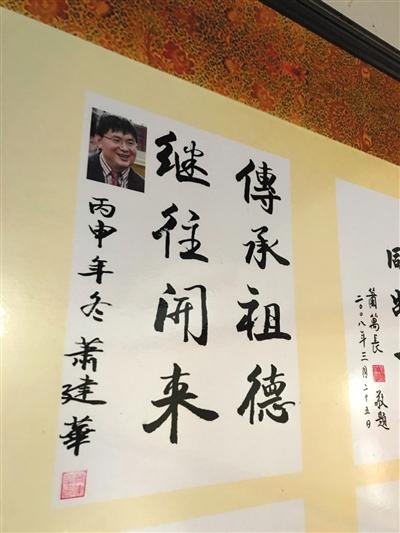 傳承祖德
继往開来
丙申年冬 萧建華
蕭萬長 敬題
二〇〇八年三月二十五日